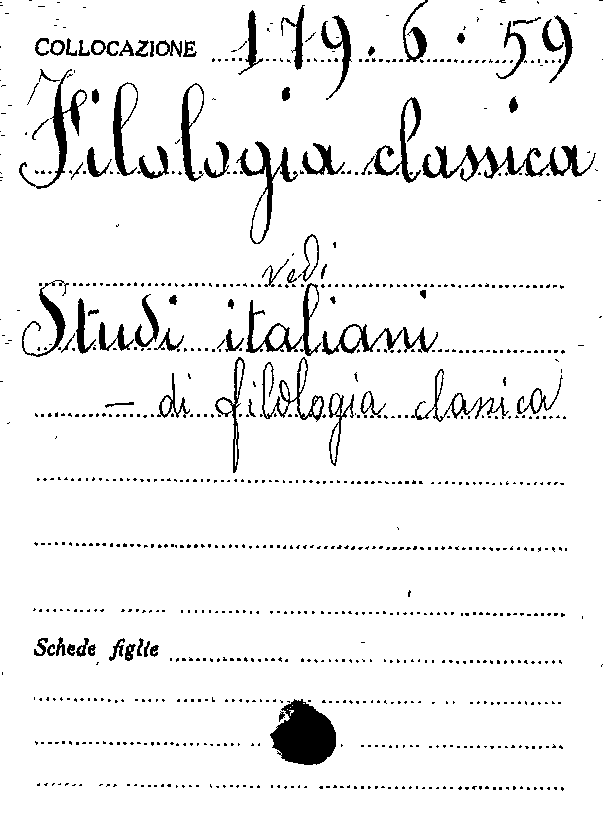 COLLOCAZIONE 179.6.59
Filologia classica
vedi
Studi italiani
- di filologia classica
Schede figlie